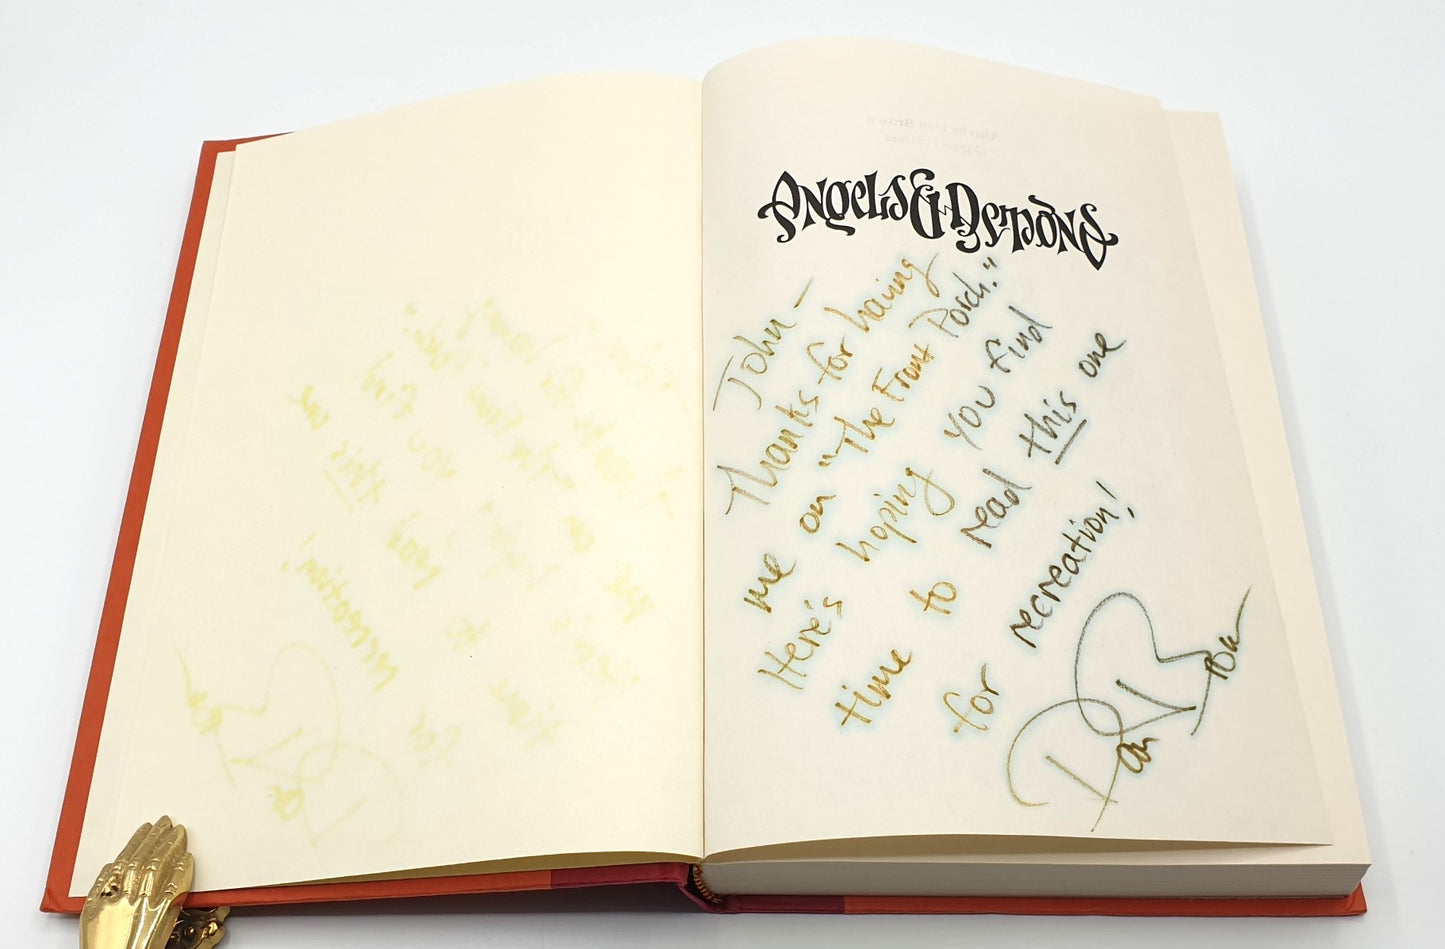 Also by Dan Brown
Digital Fortress
ANGELS & DEMONS
John –
Thanks for having
me on "The Front Porch."
Here's hoping you find
time to read this one
for recreation!
Dan Brown